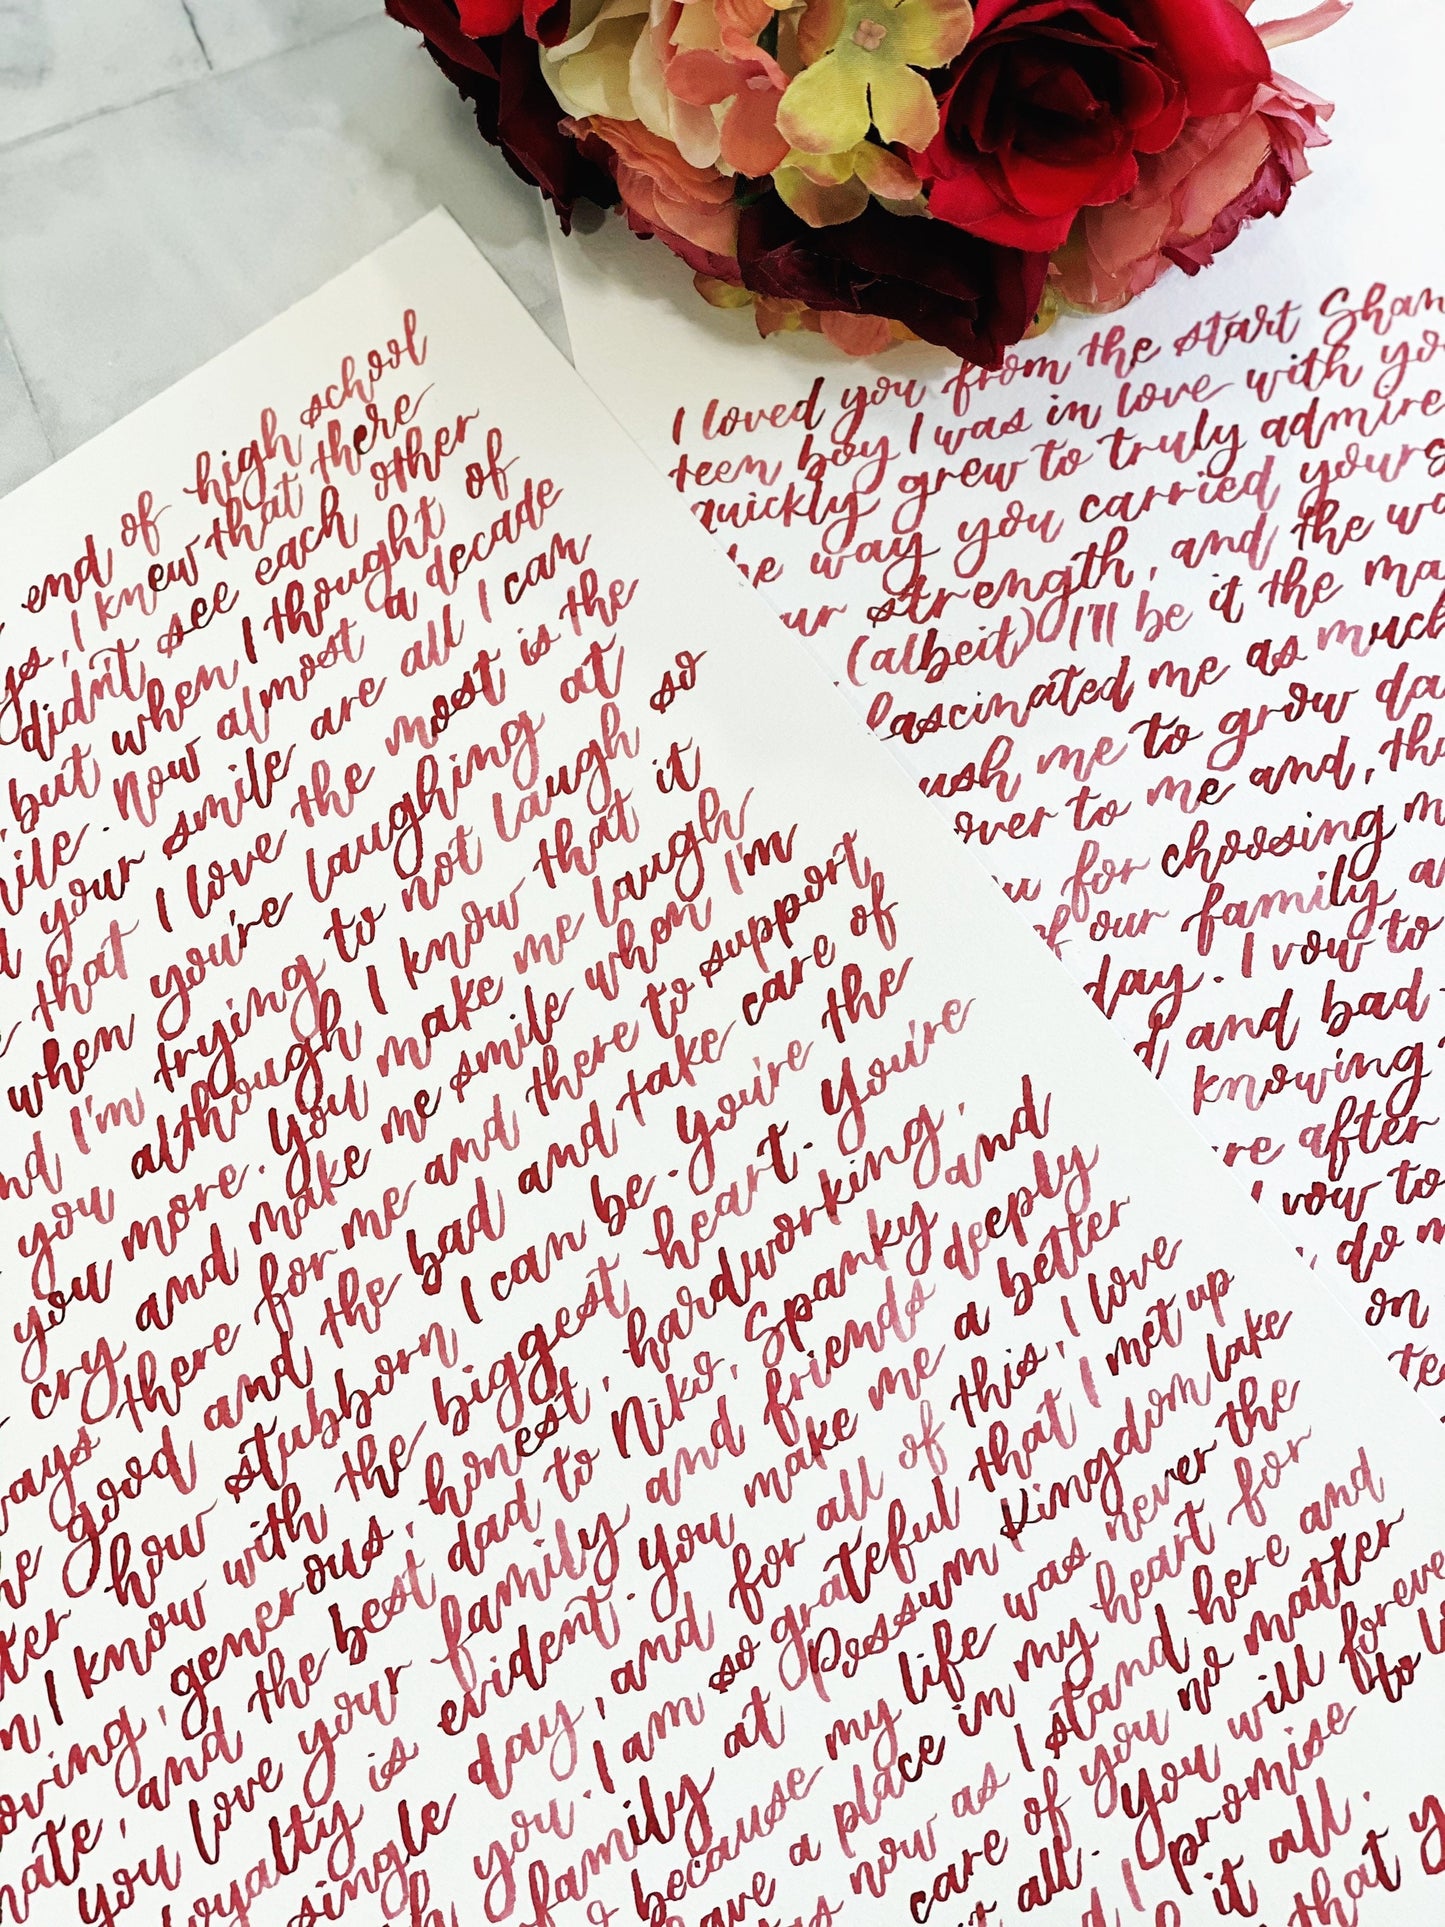 end of high school
I knew that there
didn't see each other
but when I thought of
now almost a decade
your smile are all I can
that I love the most is the
when you're laughing at
I'm trying to not laugh so
you although I know that it
you more. you make me laugh
cry and make me smile when I'm
there for me and there to support
good and the bad and take care of
how stubborn I can be. you're the
I know with the biggest heart. you're
generous, honest, hardworking,
and the best dad to Niko, Spanky and
you love your family and friends deeply
is evident. you make me a better
single day, and for all of this, I love
you. I am so grateful that I met up
family at Possum Kingdom lake
because my life was never the
a place in my heart for
now as I stand here and
care of you no matter
all. you will forever
I promise to
it all.
that
I loved you from the start
teen boy I was in love with
quickly grew to truly admire
way you carried
strength, and the
(albeit) I'll be it the
fascinated me as much
me to grow
over to me and,
for choosing
our family
day. I vow to
and bad
knowing
after
vow to
do
on